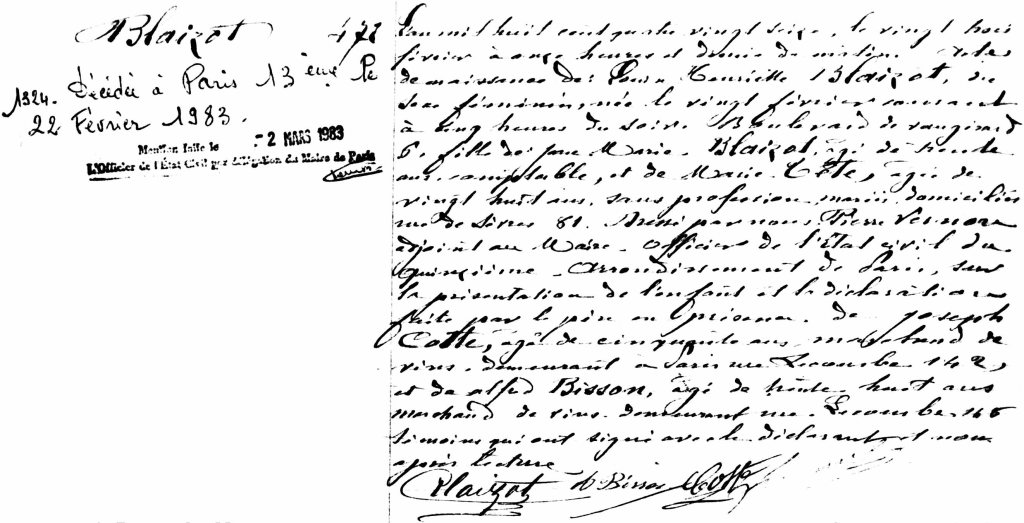 Blaizot
472
1324. Décédée à Paris 13 ème Pe
22 Février 1983.
- 2 MARS 1983
Mention faite le
L'Officier de l'État Civil par délégation du Maire de Paris
L'an mil huit cent quatre vingt seize, le vingt trois
février à onze heures et demie du matin. Acte
de naissance de: Henriette Blaizot, du
sexe féminin, née le vingt février courant
à cinq heures du soir, Boulevard de vaugirard
6. fille de: Marie Blaizot, âgé de trente
ans, comptable, et de Marie Cotte, âgée de
vingt huit ans, sans profession, mariés, domiciliés
rue de Sèvres 81. Dressé par nous, Pierre
adjoint au Maire, officier de l'État civil du
Quinzième Arrondissement de Paris, sur
la présentation de l'enfant et la déclaration
faite par le père en présence de Joseph
Cotte, âgé de cinquante ans, marchand de
vins, demeurant à Paris rue Lecourbe 142,
et de alfred Bisson, âgé de trente huit ans
marchand de vins demeurant rue Lecourbe
témoins qui ont signé avec le déclarant et nous
après lecture
Blaizot A Bisson Cotte